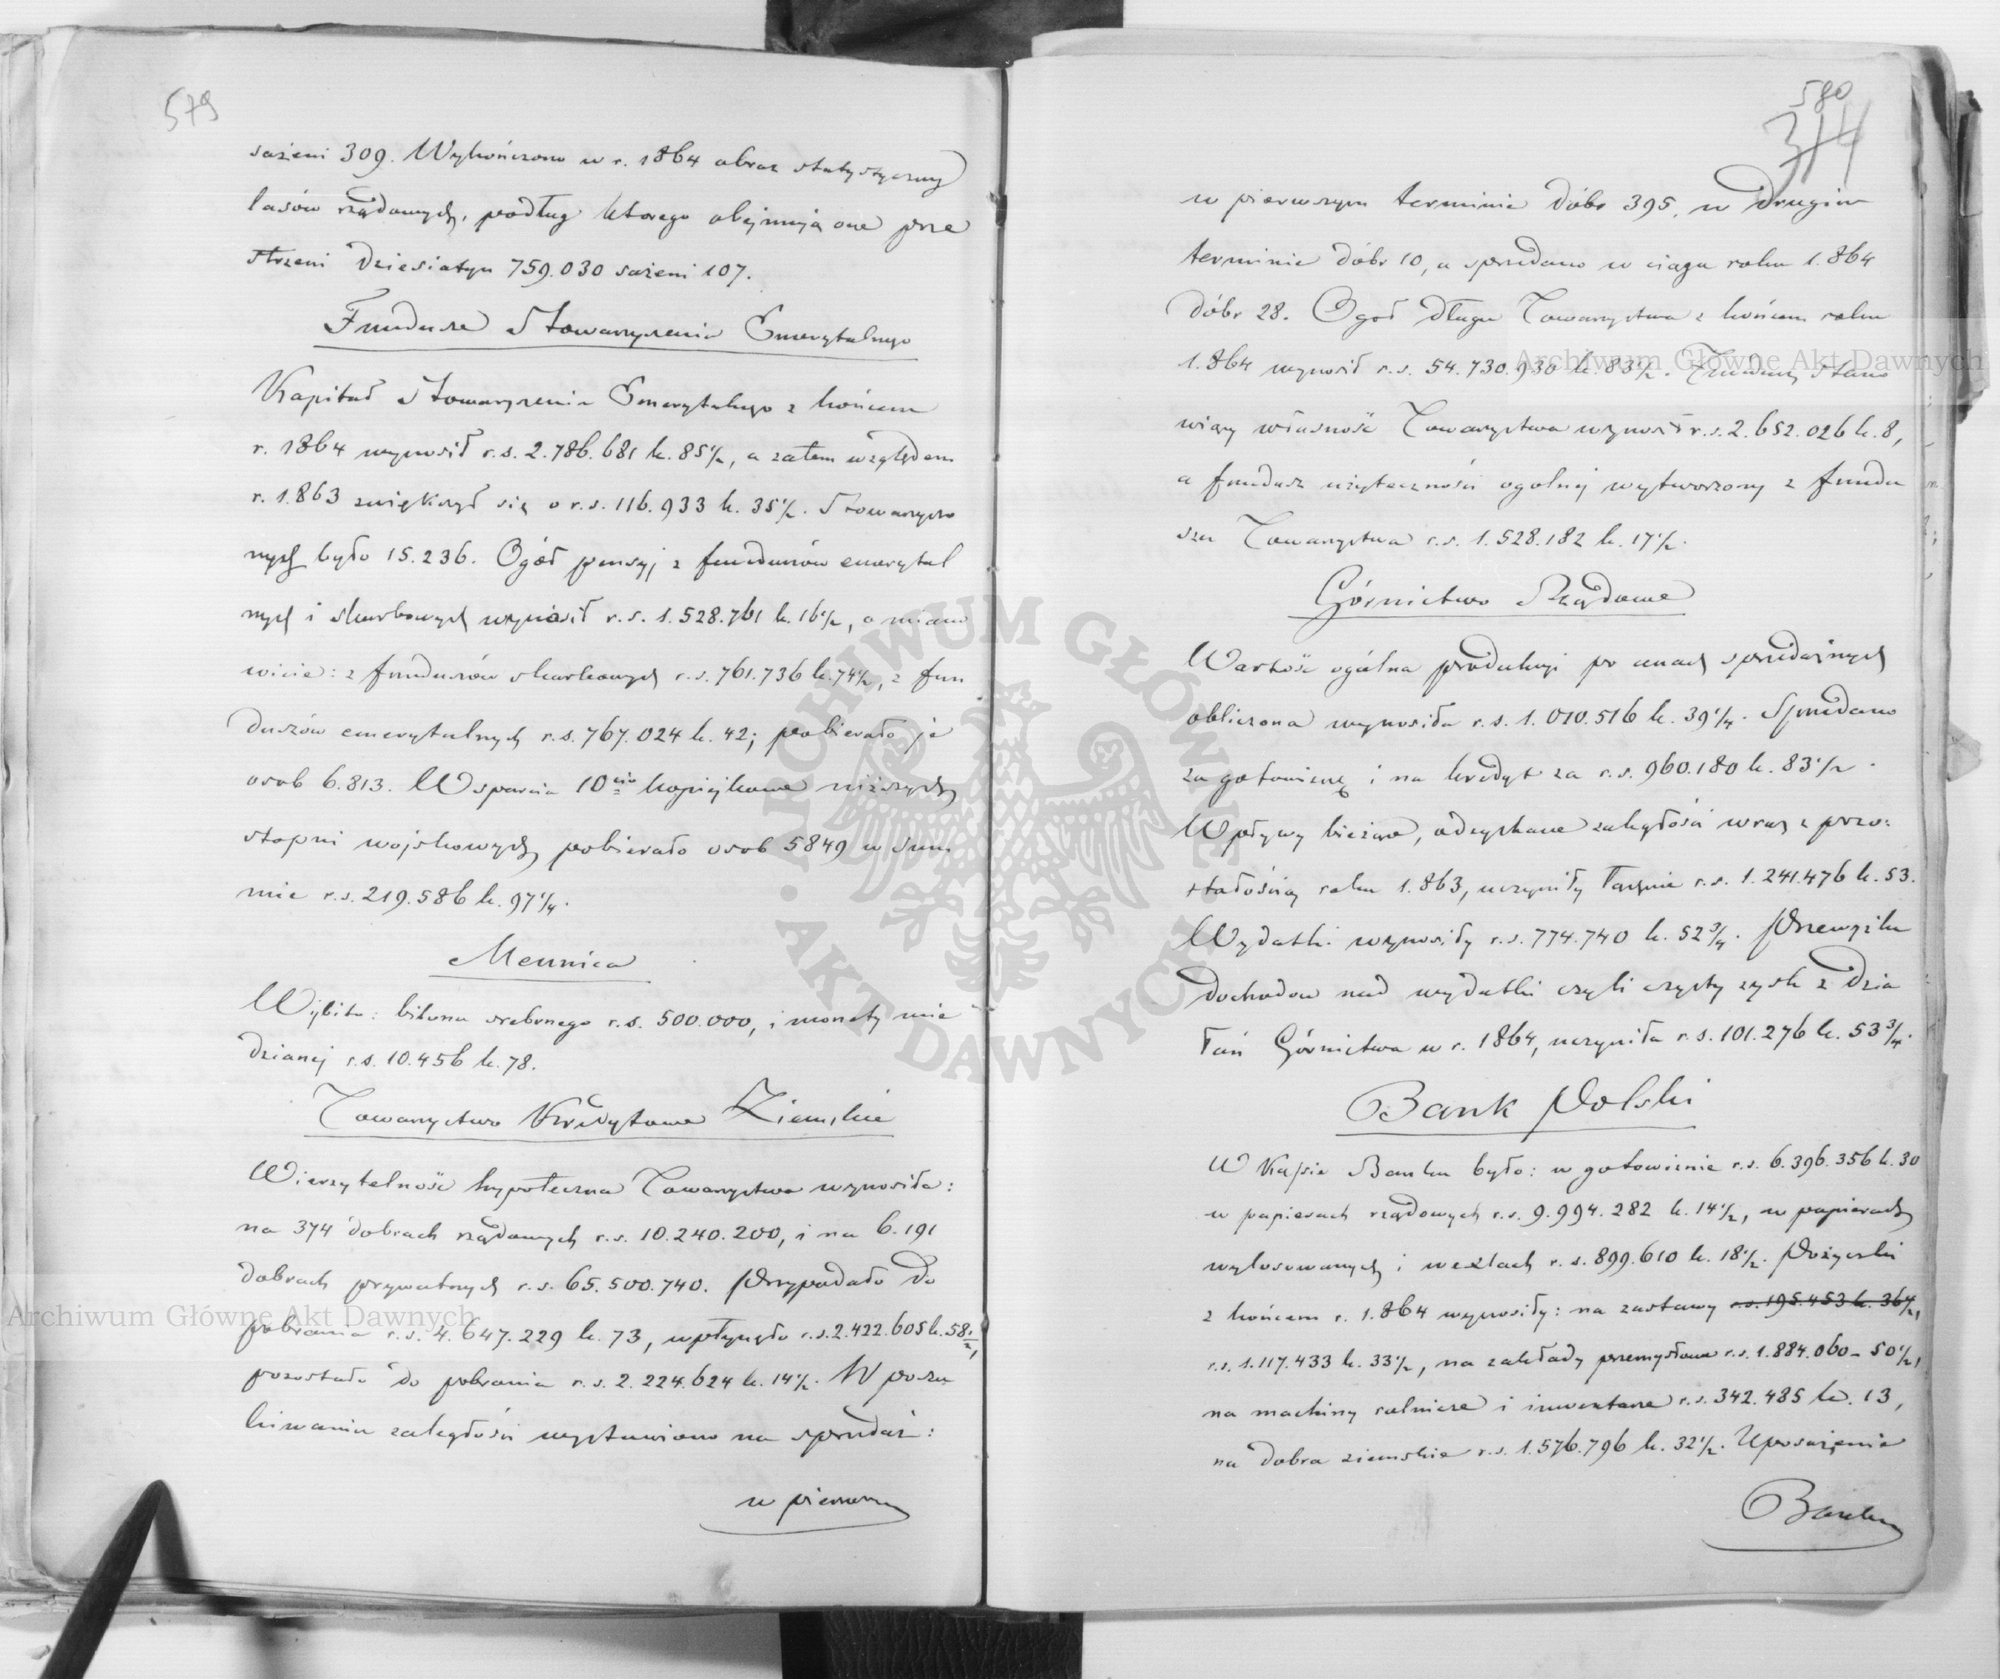 579
sażeni 309. Wykończono w r. 1864 obraz statystyczny
lasów rządowych, podług ktorego obejmują one prze
strzeni dziesiatyn 759.030 sażeni 107.
Fundusz Stowarzyszenia Emerytalnego
Kapitał Stowarzyszenia Emerytalnego z końcem
r. 1864 wynosił r.s. 2.786.681 k. 85½, a zatem względem
r. 1.863 zwiększył się o r.s. 116.933 k. 35½. Stowarzyszo
nych było 15.236. Ogół pensyj z funduszów emerytal
nych i skarbowych wynosił r.s. 1.528.761 k. 16½, a miano
wicie: z funduszów skarbowych r.s. 761.736 k. 74½, z fun
duszów emerytalnych r.s. 767.024 k. 42; pobierało je
osob 6.813. Wsparcia 10cio kopiejkowe niższych
stopni wojskowych pobierało osob 5849 w sum
mie r.s. 219.586 k. 97¼.
Mennica
Wybito: bilonu srebrnego r.s. 500.000, i monety mie
dzianej r.s. 10.456 k. 78.
Towarzystwo Kredytowe Ziemskie
Wierzytelność hypoteczna Towarzystwa wynosiła:
na 374 dobrach rządowych r.s. 10.240.200, i na 6.191
dobrach prywatnych r.s. 65.500.740. Przypadało do
pobrania r.s. 4.647.229 k. 73, wpłynęło r.s. 2.422.605 k. 58½,
pozostało do pobrania r.s. 2.224.624 k. 14½. W poszu
kiwaniu zaległości wystawiono na sprzedaż:
w pierwszym
580
314
w pierwszym terminie dóbr 395, w drugim
terminie dóbr 10, a sprzedano w ciągu roku 1.864
dóbr 28. Ogoł długu Towarzystwa z końcem roku
1.864 wynosił r.s. 54.730.930 k. 83½. Fundusz stano
wiący własność Towarzystwa wynosił r.s. 2.652.026 k. 8,
a fundusz użyteczności ogolnej wytworzony z fundu
szu Towarzystwa r.s. 1.528.182 k. 17½.
Górnictwo Rządowe
Wartość ogólna produkcji po cenach sprzedażnych
obliczona wynosiła r.s. 1.010.516 k. 39¼. Sprzedano
za gotowiznę i na kredyt za r.s. 960.180 k. 83½.
Wpływy bieżące, odzyskane zaległości wraz z pozo-
stałością roku 1.863, uczyniły łącznie r.s. 1.241.476 k. 53.
Wydatki wynosiły r.s. 774.740 k. 52¾. Przewyżka
dochodow nad wydatki czyli czysty zysk z dzia
łań Górnictwa w r. 1864, uczyniła r.s. 101.276 k. 53¾.
Bank Polski
W Kassie Banku było: w gotowiznie r.s. 6.396.356 k. 30
w papierach rządowych r.s. 9.994.282 k. 14½, w papierach
wylosowanych i wexlach r.s. 899.610 k. 18½. Pożyczki
z końcem r. 1.864 wynosiły: na zastawy r.s. 195.453 k. 36½,
r.s. 1.117.433 k. 33½, na zakłady przemysłowe r.s. 1.884.060 - 50½,
na machiny rolnicze i inwentarze r.s. 342.485 k. 13,
na dobra ziemskie r.s. 1.576.796 k. 32½. Uposażenie
Banku
Archiwum Główne Akt Dawnych
Archiwum Główne Akt Dawnych
ARCHIWUM GŁÓWNE AKT DAWNYCH